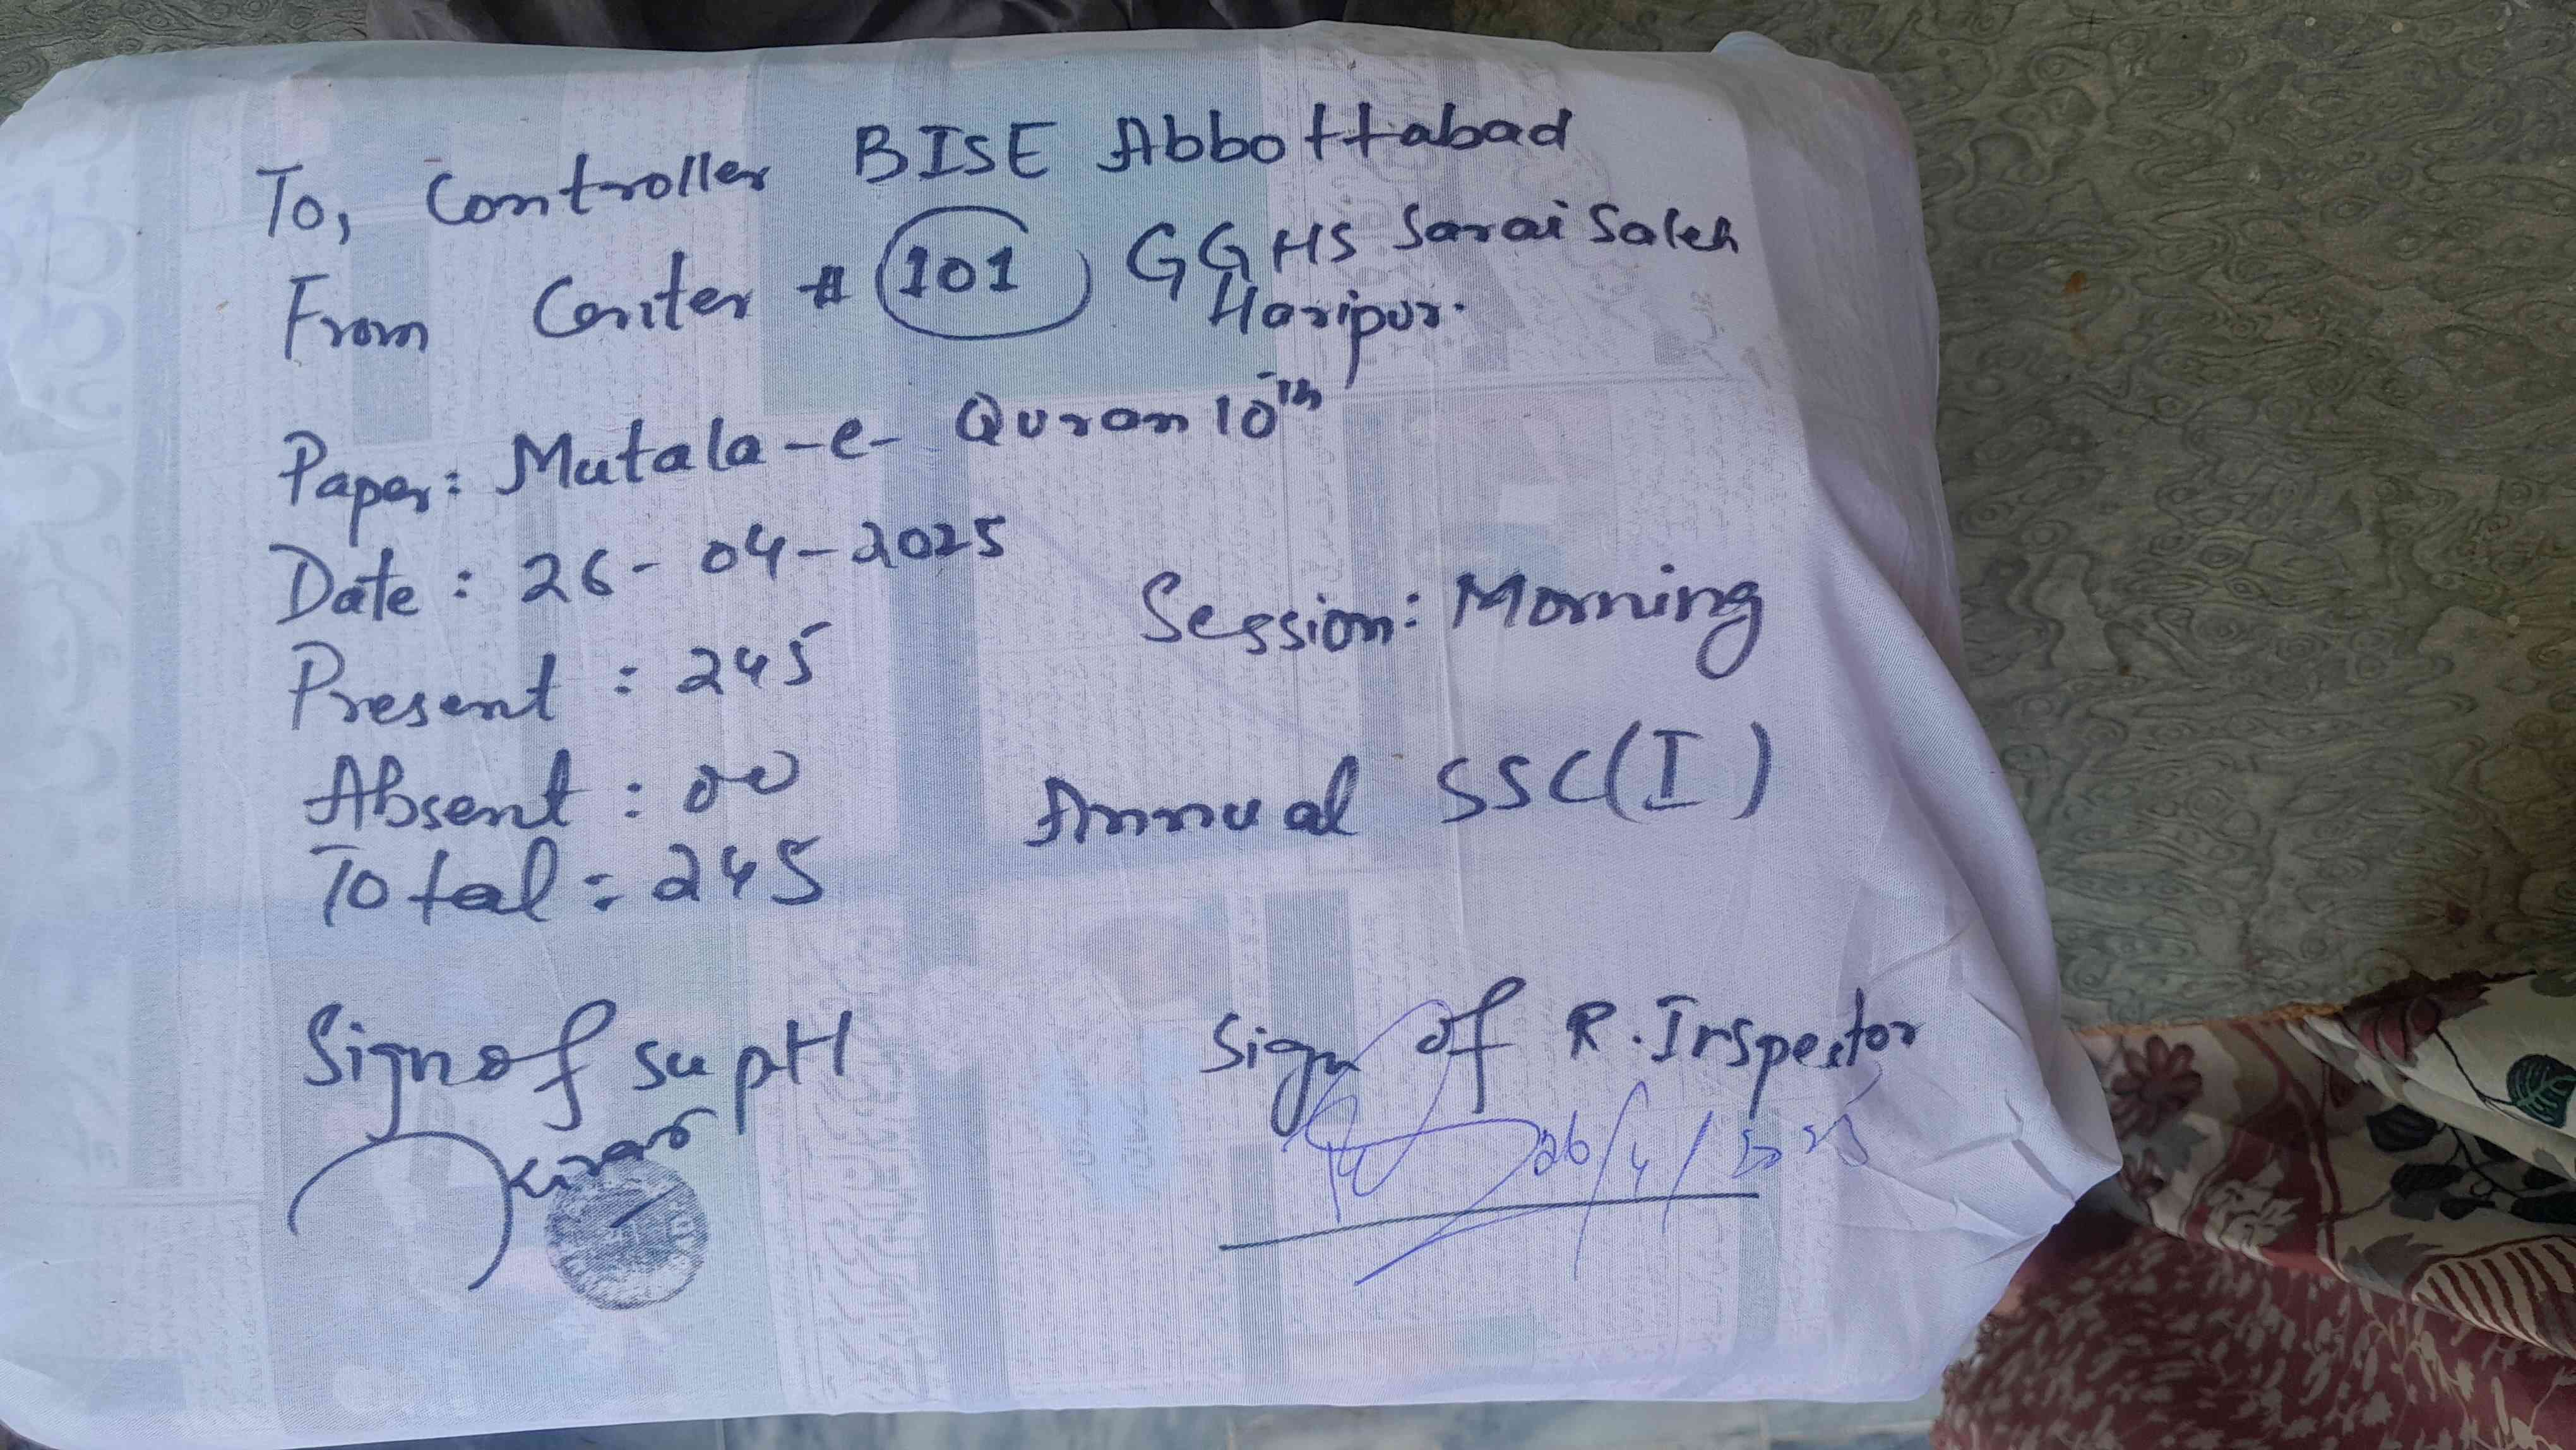 To, Controller BISE Abbottabad
From Center # 101 GGHS Sarai Saleh
Haripur.
Paper: Mutala-e- Quran 10th
Date: 26-04-2025
Session: Morning
Present: 245
Absent: 00
Annual SSC(I)
Total: 245
Sign of suptt
Sign of R.Inspector
Kiran
26/4/2025